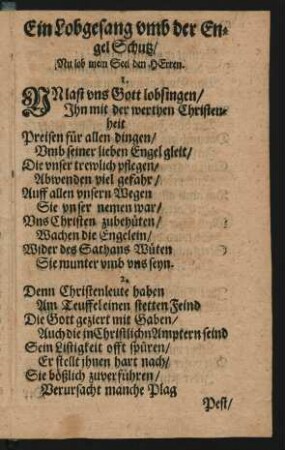 Ein Lobgesang vmb der En-
gel Schutz/
Nu lob mein Seel den HErren.
1.
NVn last vns Gott lobsingen/
Ihn mit der werthen Christen-
heit
Preisen für allen dingen/
Vmb seiner lieben Engel gleit/
Die vnser trewlich pflegen/
Abwenden viel gefahr/
Auff allen vnsern Wegen
Sie vnser nemen war/
Vns Christen zubehüten/
Wachen die Engelein/
Wider des Sathans Wüten
Sie munter vmb vns seyn.
2.
Denn Christenleute haben
Am Teuffel einen stetten Feind
Die Gott geziert mit Gaben/
Auch die in Christlichn Amptern seind
Sein Listigkeit offt spüren/
Er stellt jhnen hart nach/
Sie bößlich zuverführen/
Verursacht manche Plag
Pest/